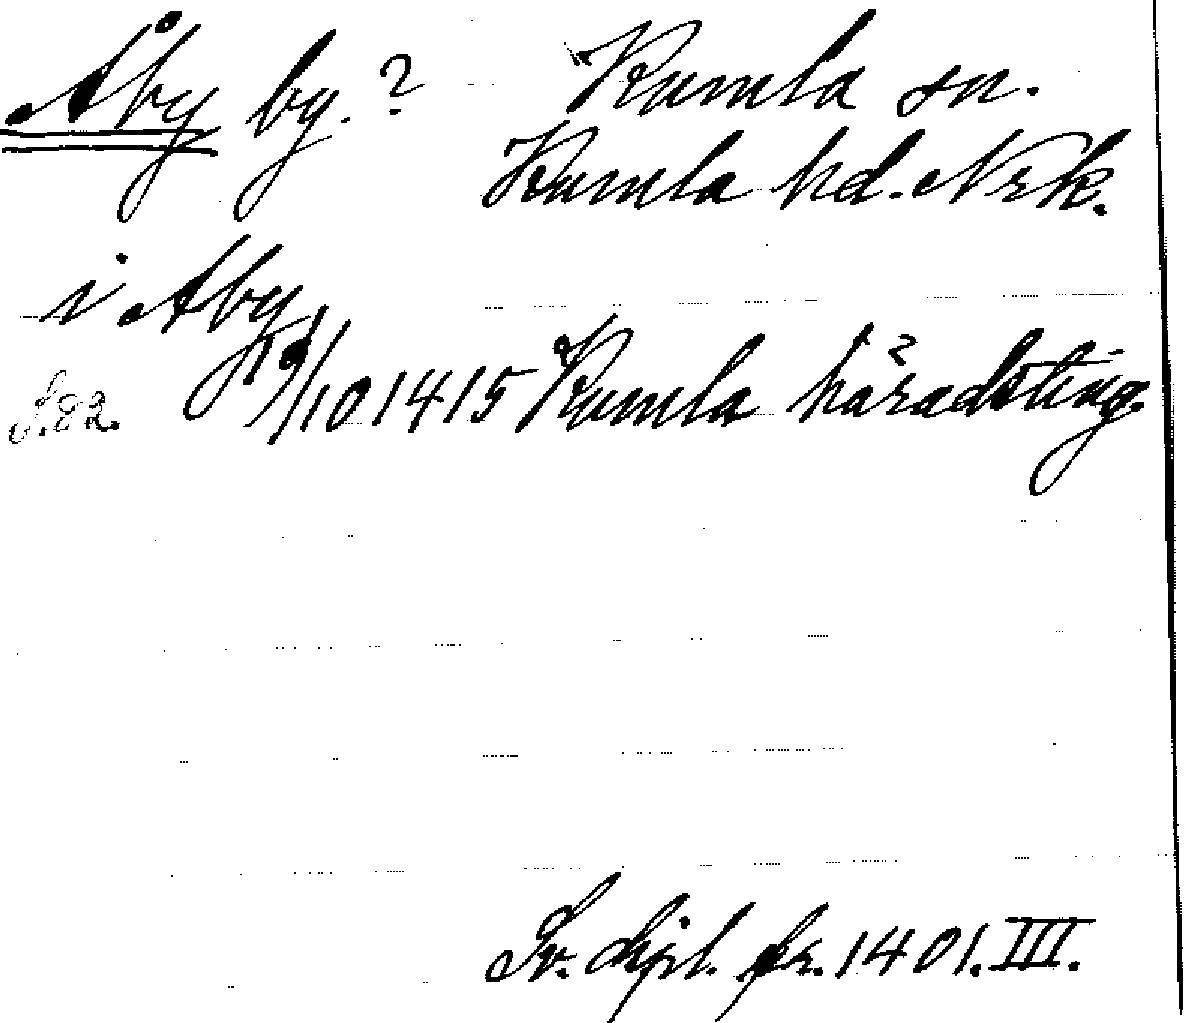 Åby by.? Kumla sn.
Kumla hd. Nrk.
i Aby
S. 82. 19/10 1415 Kumla häradsting.
Sv. dipl. fr. 1401. III.